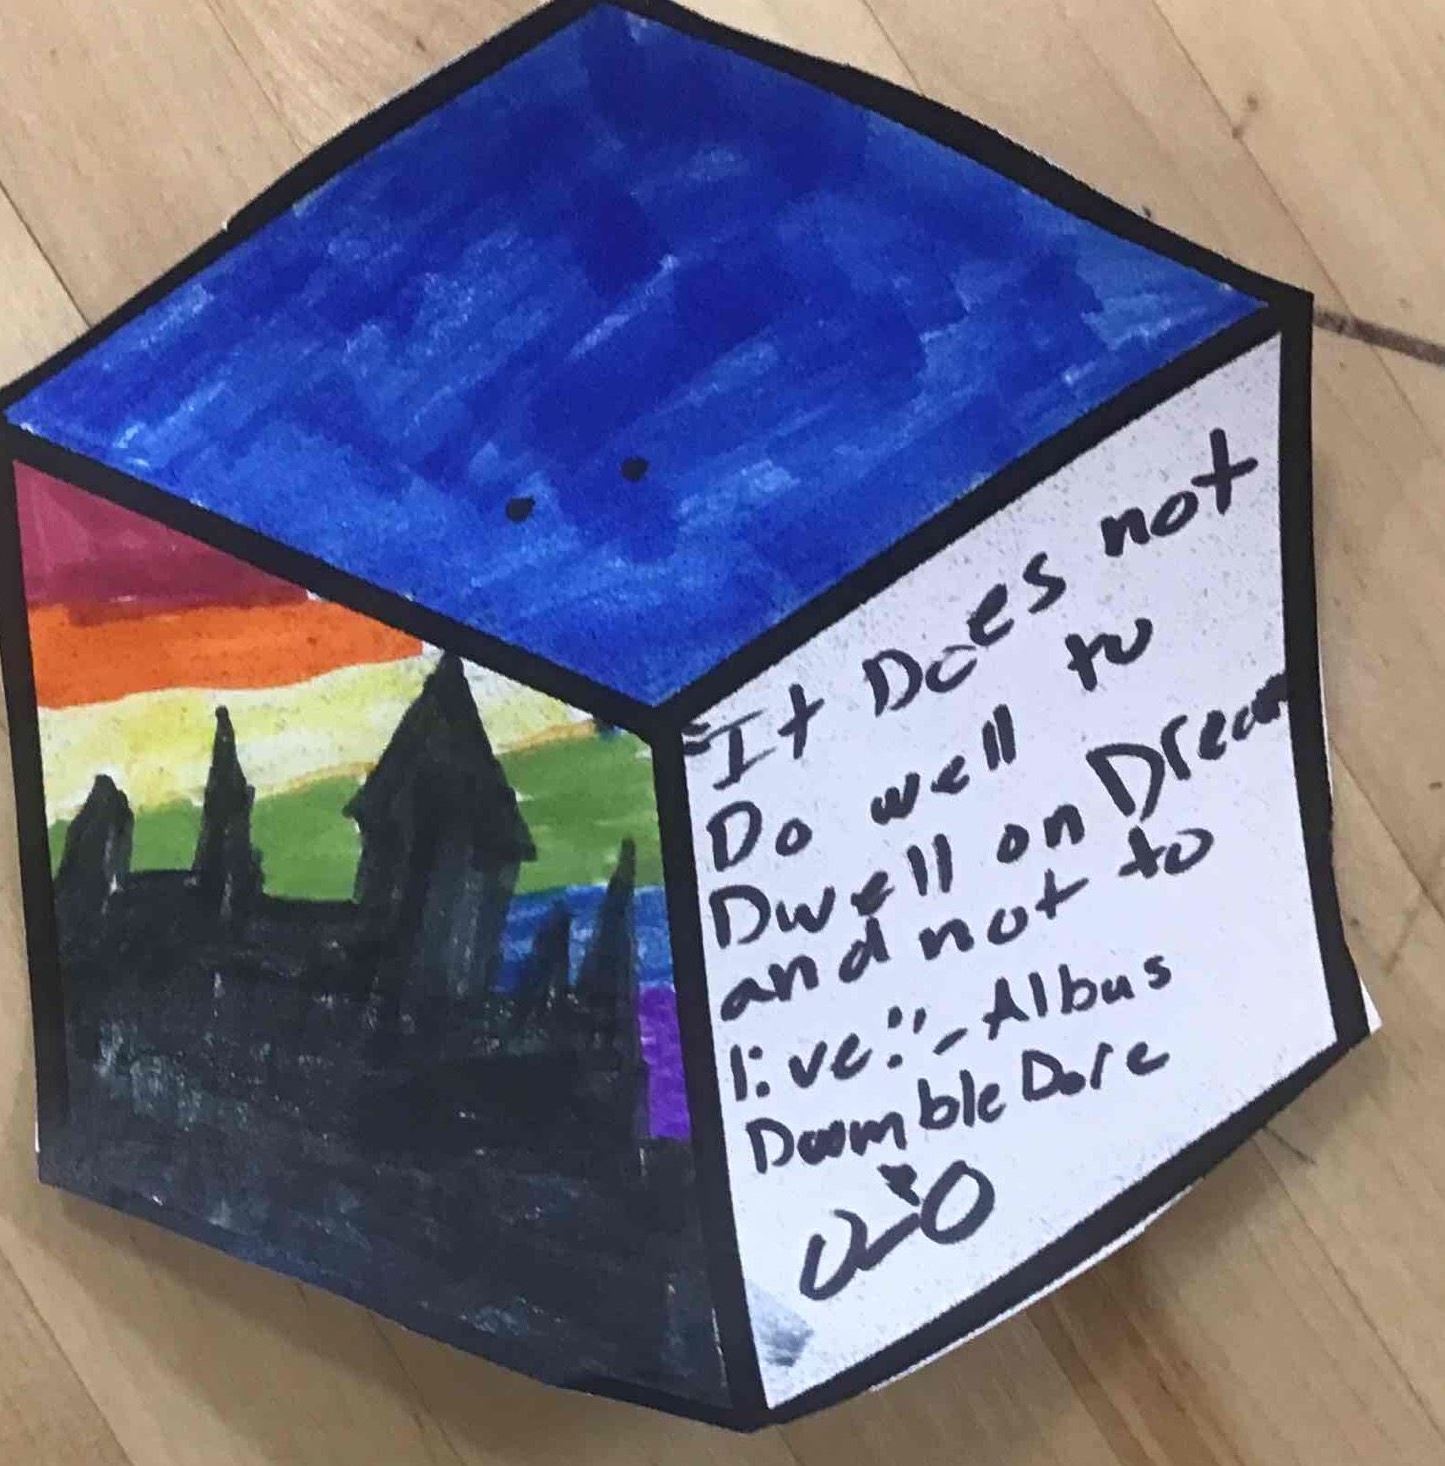 "It Does not
Do well to
Dwell on Dream
and not to
live." - Albus
Doombledore